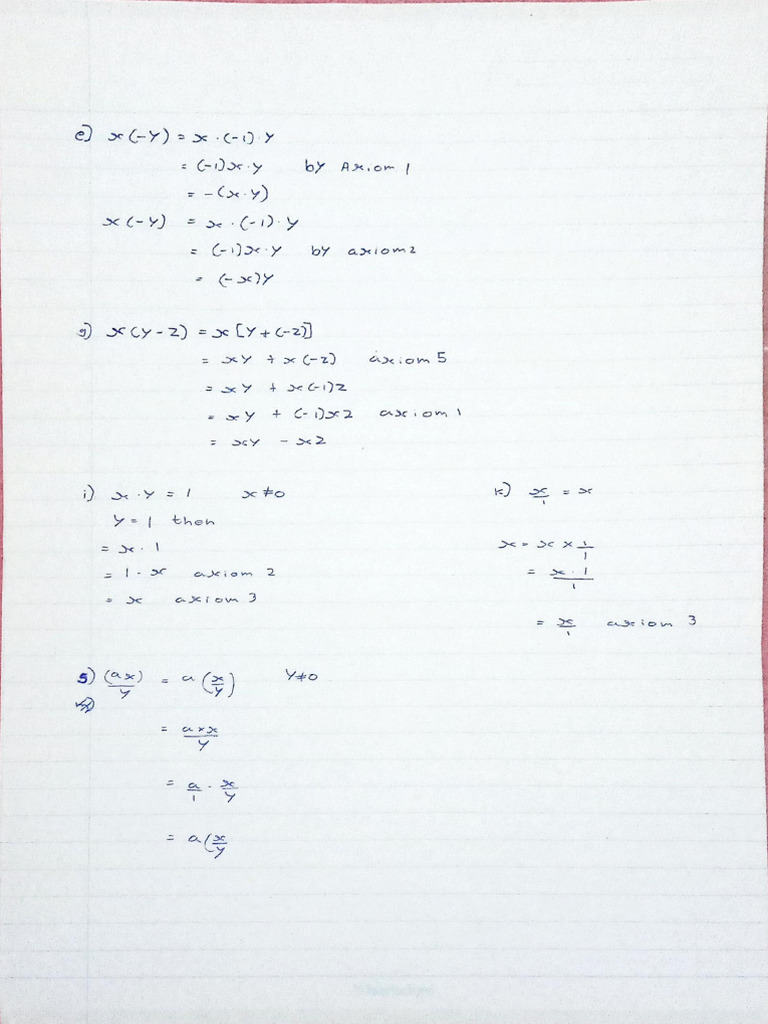 e) x(-y) = x · (-1) · y
= (-1)x · y by Axiom 1
= -(x · y)
x(-y) = x · (-1) · y
= (-1)x · y by axiom 2
= (-x)y
g) x(y - z) = x[y + (-z)]
= xy + x(-z) axiom 5
= xy + x(-1)z
= xy + (-1)xz axiom 1
= xy - xz
i) x · y = 1 x ≠ 0
y = 1 then
= x · 1
= 1 · x axiom 2
= x axiom 3
k) x/1 = x
x = x × 1/1
= x · 1/1
= x/1 axiom 3
5) (ax)/y = a(x/y) y ≠ 0
= a × x/y
= a/1 · x/y
= a(x/y